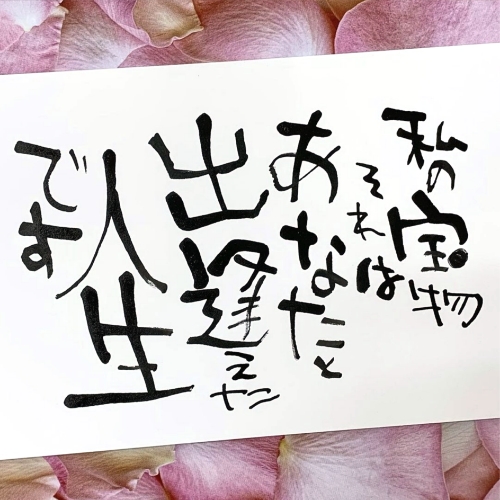 私の宝物
それは
あなたと
出逢えた
人生
です